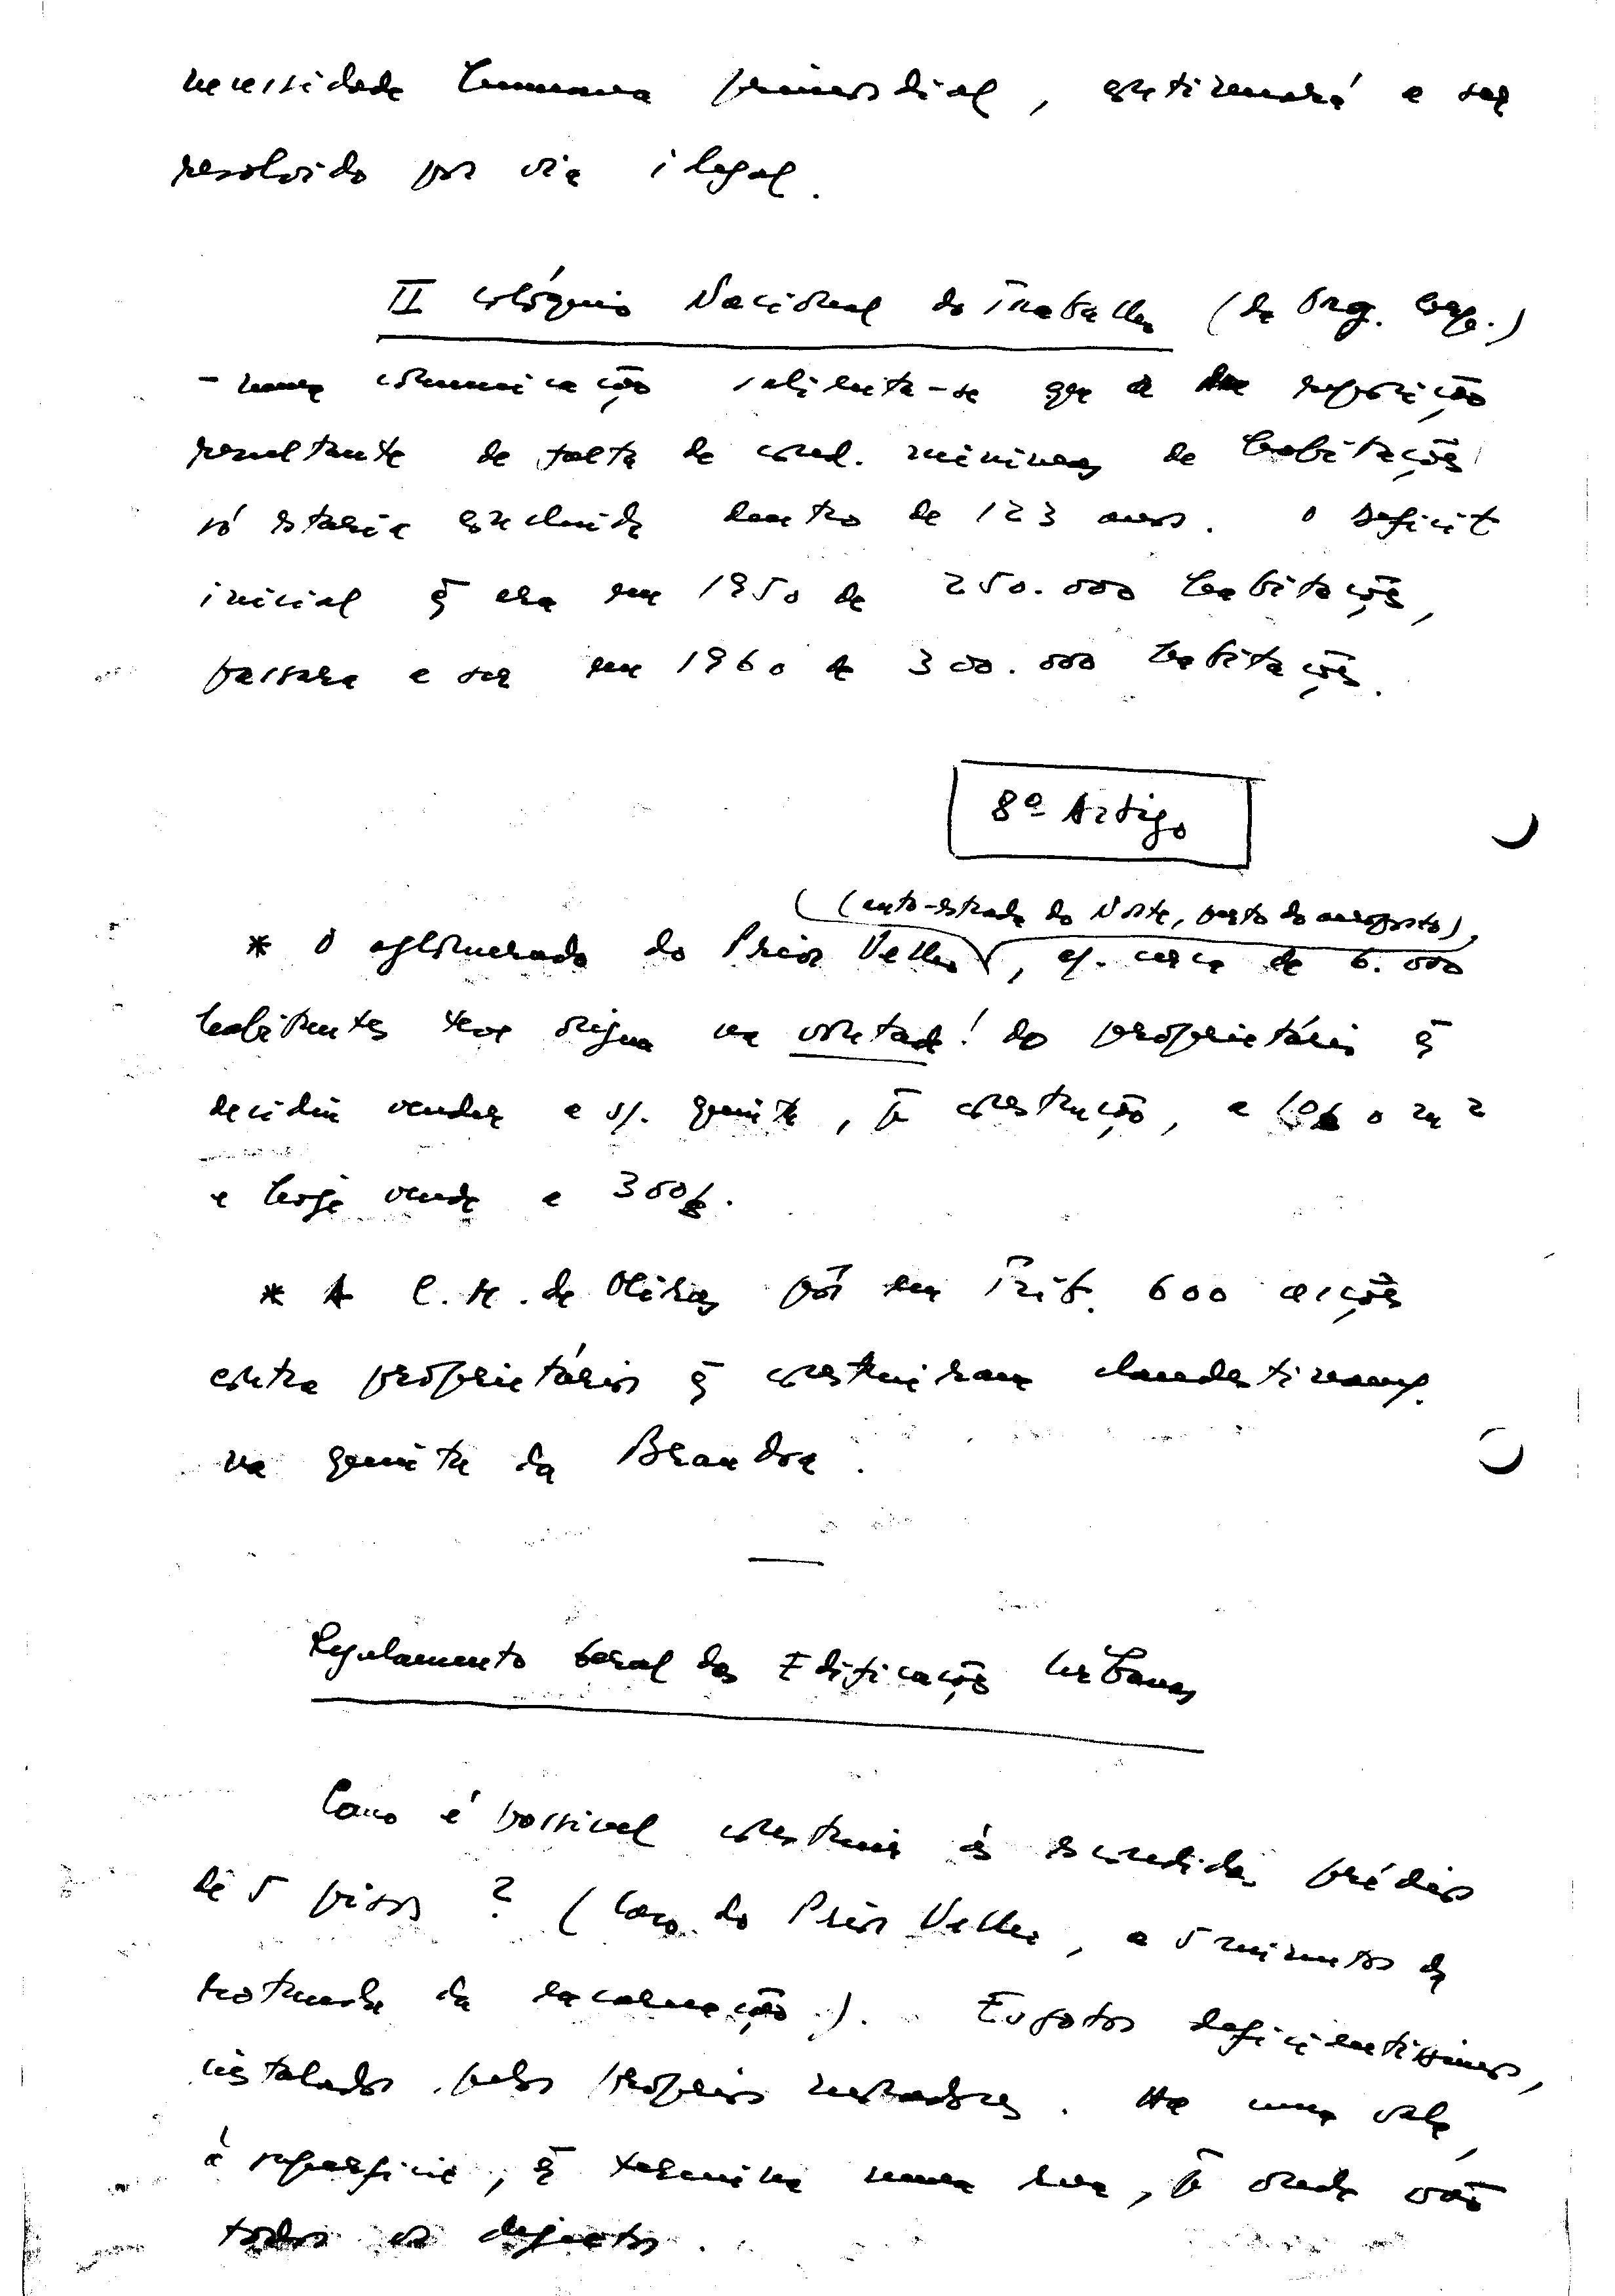 necessidade humana primordial, continuará a ser
resolvido por via ilegal.
II Colóquio Nacional do Trabalho (da Org. Corp.)
- numa comunicação salienta-se que a reposição
resultante de falta de cond. mínimas de habitações
só estaria excluída dentro de 123 anos. O deficit
inicial q̄ era em 1950 de 250.000 habitações,
passara a ser em 1960 de 300.000 habitações.
8º Artigo
(auto-estrada do Norte, perto do aeroporto),
* O aglomerado do Prior Velho, c/. cerca de 6.000
habitantes teve origem na vontade! do proprietário q̄
decidiu vender a s/. quinta, p̄ construção, a 10$ o m2
e hoje vende a 300$.
* A C. M. de Oeiras pôs em Trib. 600 acções
contra proprietários q̄ construiram clandestinam.
na quinta da Brandoa.
Regulamento Geral das Edificações Urbanas
Como é possivel construir às escondidas prédios
de 5 pisos? (Caso do Prior Velho, a 5 minutos da
rotunda da Encarnação). Esgotos deficientissimos,
instalados pelos próprios moradores. Há uma vala,
à superficie, q̄ termina numa rua, p̄ onde vão
todos os dejectos.